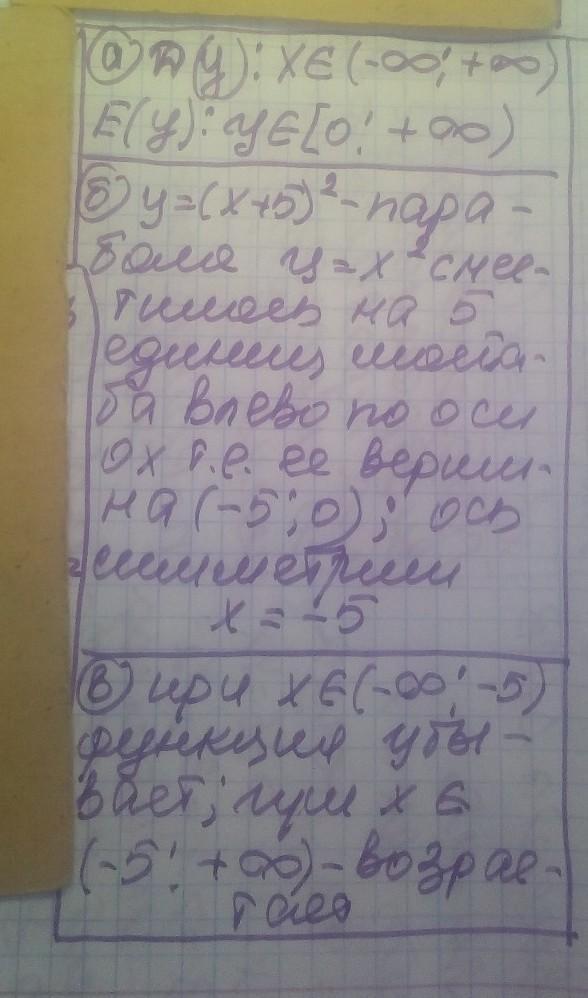 а) D(y): x∈(-∞; +∞)
E(y): y∈[0; +∞)
б) y=(x+5)²-пара-
бола y=x² сме-
тилась на 5
единиц масшта-
ба влево по оси
ох т.е. ее верши-
на (-5; 0); ось
симметрии
x = -5
в) при x∈(-∞; -5)
функция убы-
вает; при x∈
(-5; +∞)-возрас-
тает